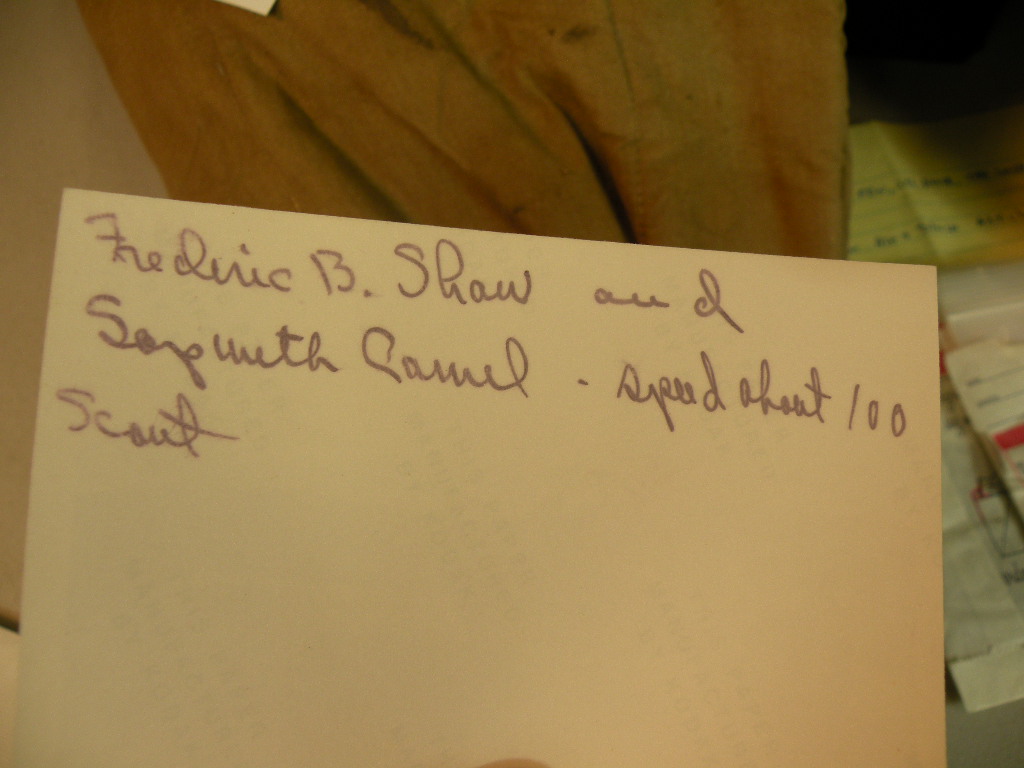 Frederic B. Shaw and
Sopwith Camel - speed about 100
Scout